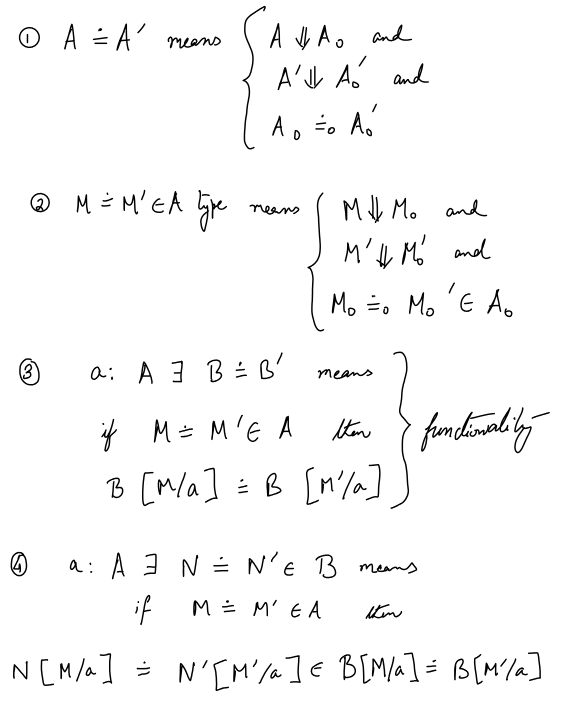 ① A ≐ A′ means { A ⇓ A₀ and
A′ ⇓ A₀′ and
A₀ ≐₀ A₀′
② M ≐ M′ ∈ A type means { M ⇓ M₀ and
M′ ⇓ M₀′ and
M₀ ≐₀ M₀′ ∈ A₀
③ a: A ∃ B ≐ B′ means
if M ≐ M′ ∈ A then } functionality
B [M/a] ≐ B [M′/a]
④ a: A ∃ N ≐ N′ ∈ B means
if M ≐ M′ ∈ A then
N [M/a] ≐ N′[M′/a] ∈ B[M/a] ≐ B[M′/a]